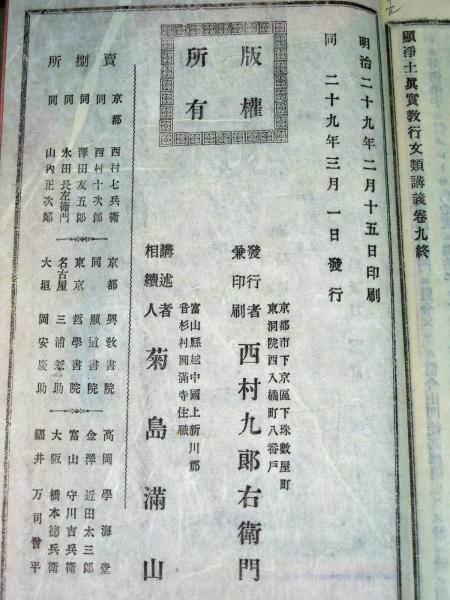 顯淨土眞實教行文類講義卷九終
明治二十九年二月十五日印刷
同 二十九年三月 一日發行
版權
所有
京都市下京區下珠數屋町
東洞院西入橘町八番戸
發行者
兼印刷
西村九郎右衛門
富山縣越中國上新川郡
音杉村圓滿寺住職
講述者
相續人
菊島滿山
賣捌所
京都 西村七兵衛
同 西村十次郎
同 澤田友五郎
同 永田長左衛門
同 山內正次郎
京都 興敎書院
同 顯道書院
東京 哲學書院
名古屋 三浦兼助
大垣 岡安慶助
高岡 學海堂
金澤 近田太三郎
富山 守川吉兵衛
大阪 橋本德兵衛
福井 万司